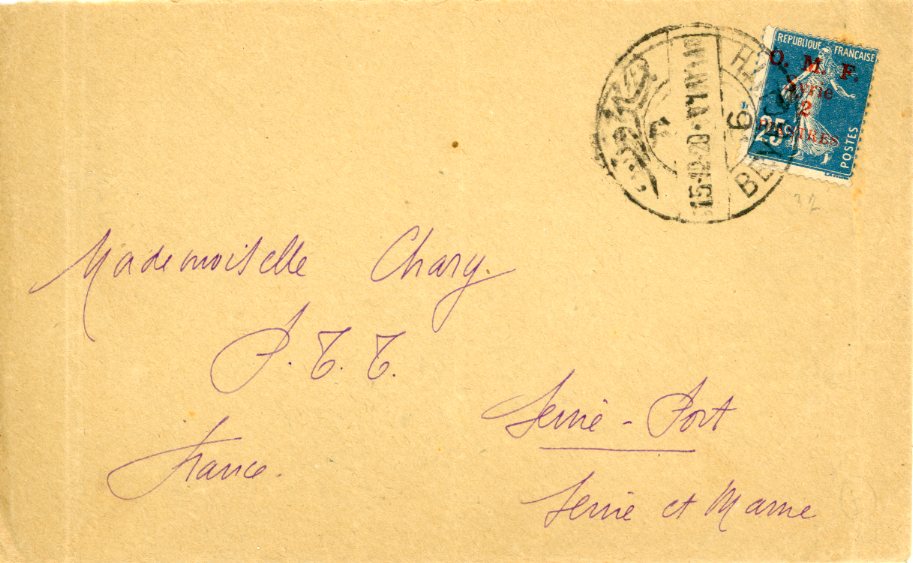 REPUBLIQUE FRANÇAISE
O. M. F.
Syrie
2
PIASTRES
25
POSTES
15-12-20
6
Mademoiselle Chary.
P. T. T.
France.
Seine-Port
Seine et Marne